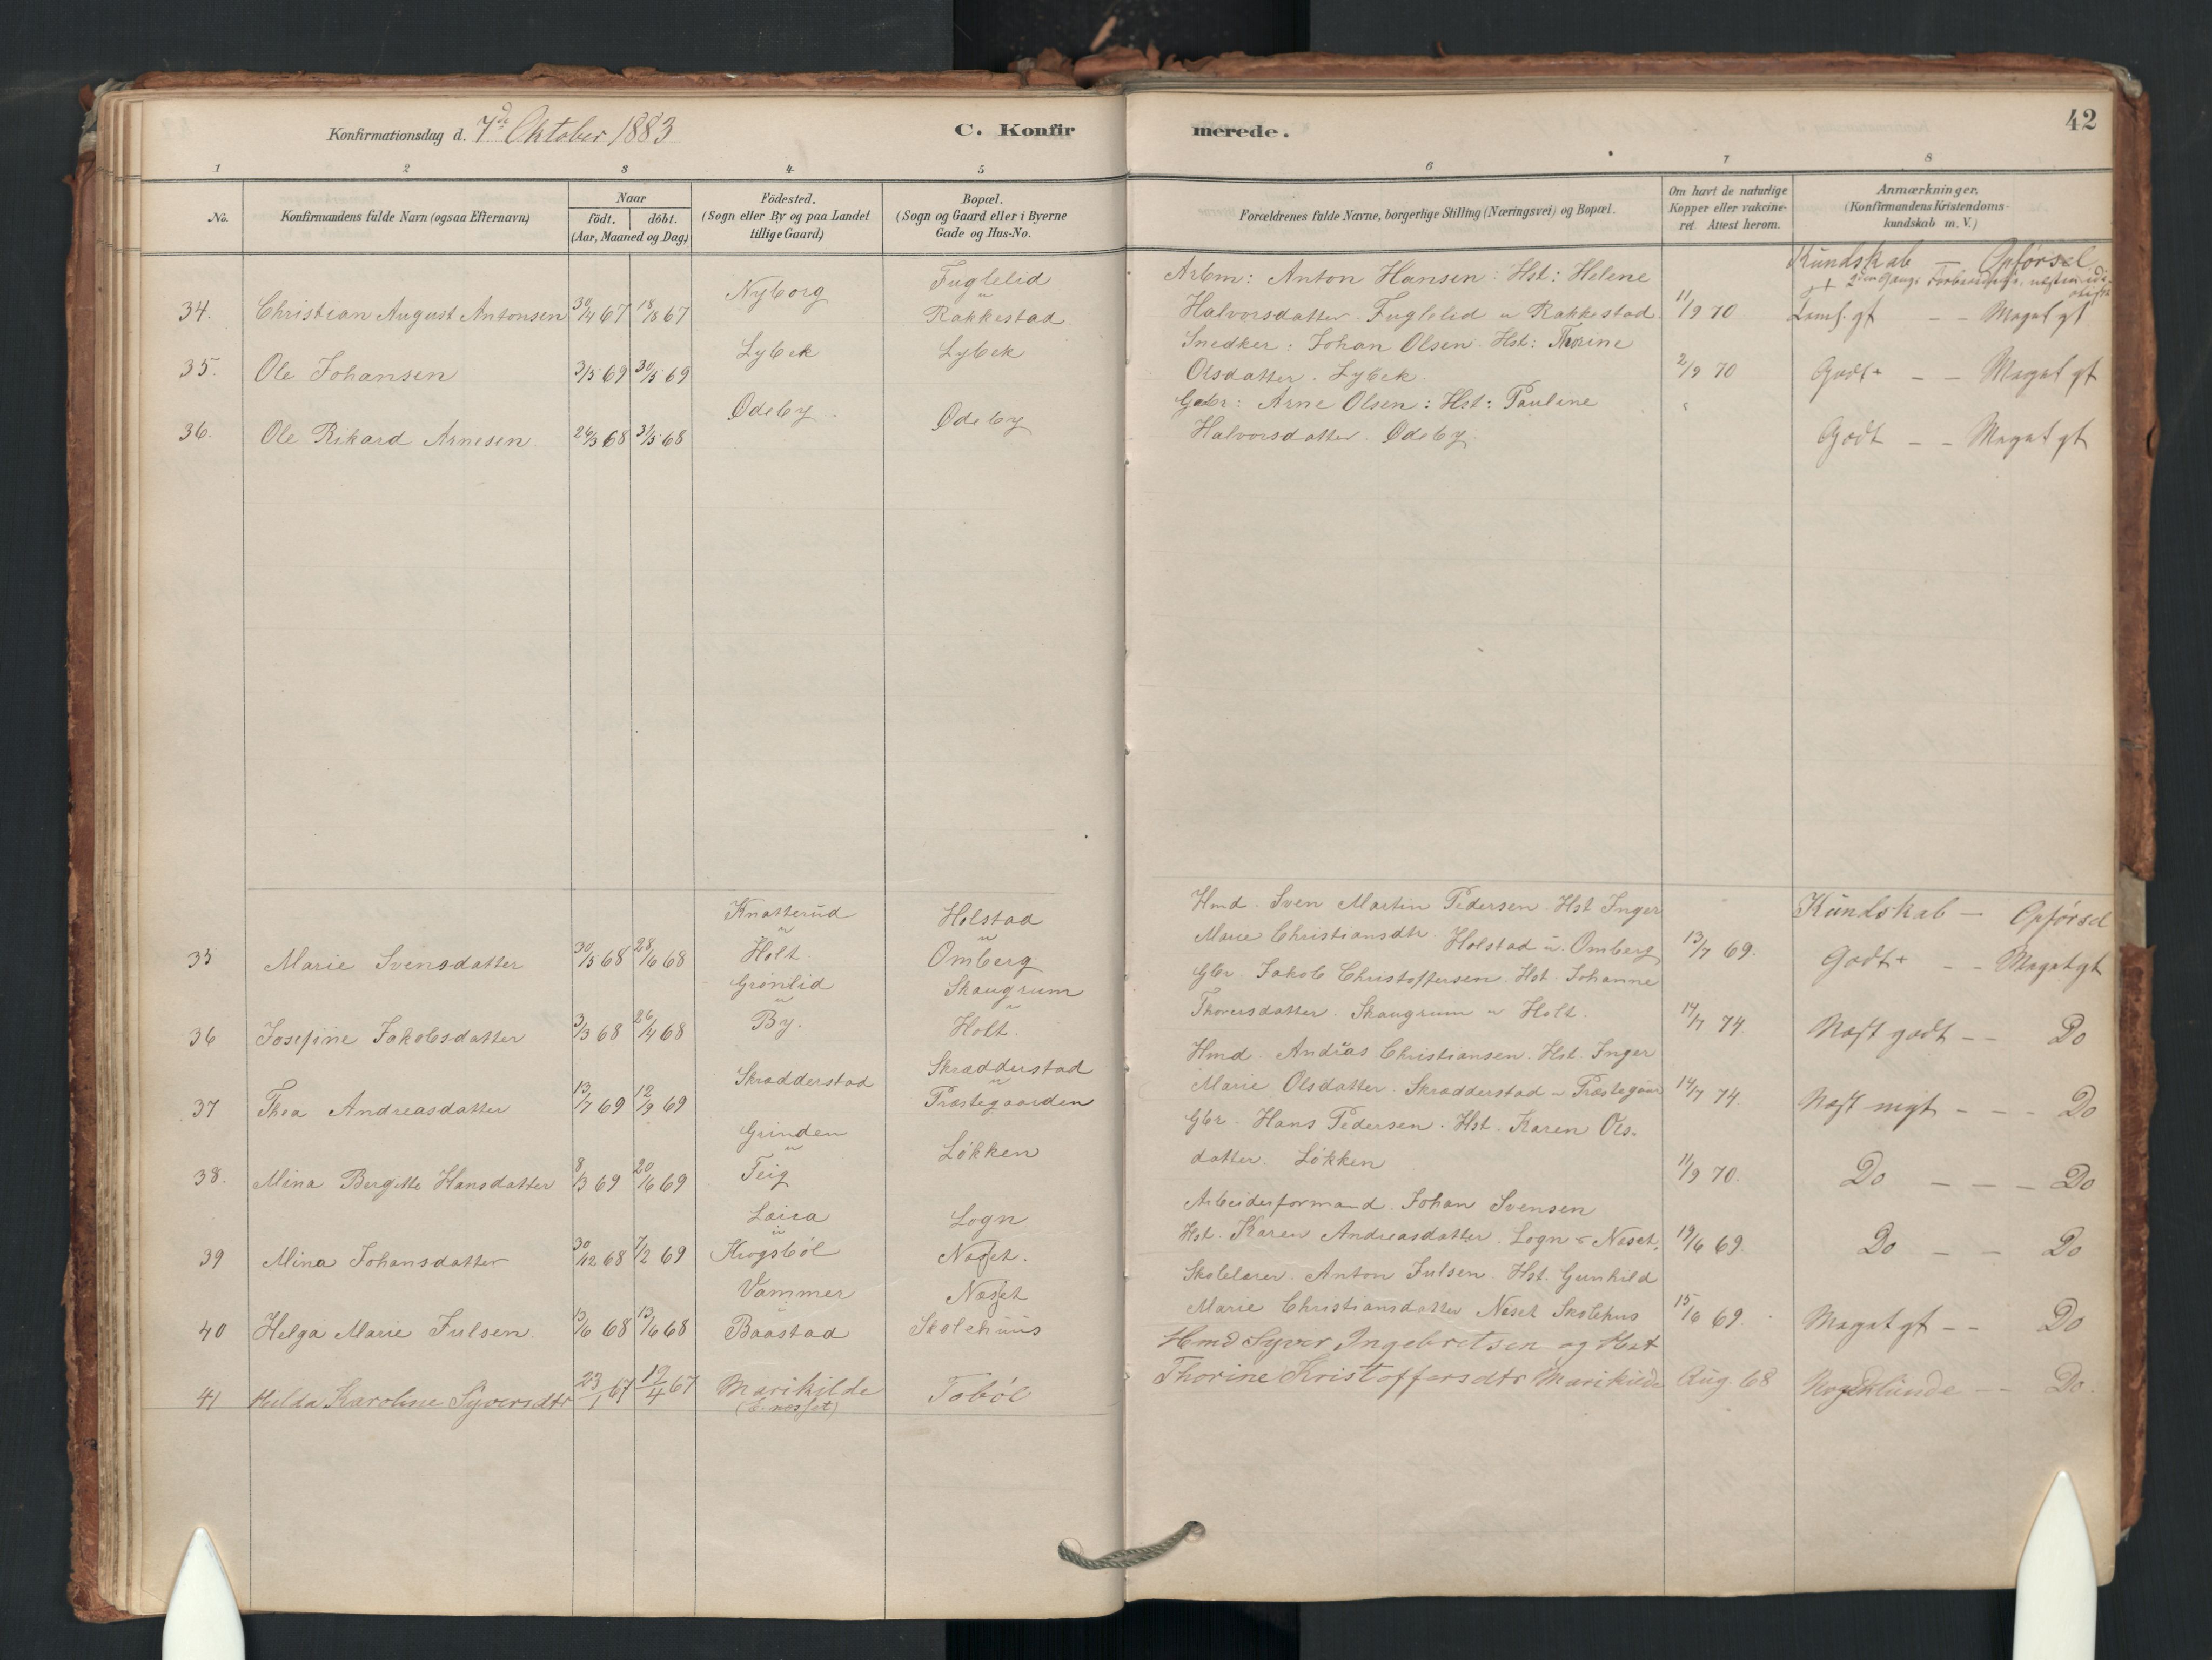 Konfirmationsdag d. 7de Oktober 1883
C. Konfir
merede.
42
1 2 3 4 5 6 7 8
No.
Konfirmandens fulde Navn (ogsaa Efternavn)
Naar
födt. döbt.
(Aar, Maaned og Dag)
Födested.
(Sogn eller By og paa Landet
tillige Gaard)
Bopæl.
(Sogn og Gaard eller i Byerne
Gade og Hus-No.
Forældrenes fulde Navne, borgerlige Stilling (Næringsvei) og Bopæl.
Om havt de naturlige
Kopper eller vakcine-
ret. Attest herom.
Anmærkninger.
(Konfirmandens Kristendoms-
kundskab m. V.)
Kundskab — Opförsel
Nyborg Fuglelid Arbm: Anton Hansen : Hst: Helene
34. Christian August Antonsen 30/4 67 18/8 67 Rakkestad Halvorsdatter. Fuglelid u Rakkestad. 11/9 70 gt – – Meget gt
Lybek Lybek Snedker: Johan Olsen. Hst: Thorine
35. Ole Johansen 3/5 69 30/5 69 Olsdatter. Lybek 2/9 70 Godt+ – – Meget gt
Ödeby Ödeby Gbr: Arne Olsen: Hst: Pauline
36. Ole Rikard Arnesen 26/3 68 31/5 68 Halvorsdatter. Ödeby. Godt – – Meget gt
Knatterud Holstad Hmd. Sven Martin Pedersen. Hst Inger Kundskab — Opförsel
35 Marie Svensdatter 30/5 68 28/6 68 u Holt. u Omberg Marie Christiansdtr. Holstad u. Omberg 13/7 69. Godt+ – – Meget gt
Grönlid Skaugrum Gbr. Jakob Christoffersen. Hst. Johanne
36 Josefine Jakobsdatter 3/3 68 26/4 68 u By. u Holt. Thoversdatter. Skaugrum u Holt. 14/7 74. Næst godt – – Do
Skradderstad Skrædderstad Hmd. Andras Christiansen. Hst. Inger
37 Thea Andreasdatter 13/7 69 12/9 69 u Præstegaarden Marie Olsdatter. Skradderstad u Præstegaar 14/7 74. Næst mgt – – – Do
Grinden Lökken Gbr. Hans Pedersen. Hst. Karen Ols-
38. Mina Bergitte Hansdatter 8/3 69 20/6 69 u Teig datter. Lökken 11/9 70. Do – – – Do
Logn Arbeiderformand. Johan Svensen
39 Mina Johansdatter 30/12 68 7/2 69 u Krogsböl Næset. Hst. Karen Andreasdatter. Logn u Næset. 19/6 69. Do – – Do
Vammer Næset Skolelærer. Anton Julsen. Hst. Gunhild
40 Helga Marie Julsen. 13/6 68 Baastad Skolehuus Marie Christiansdatter Neset Skolehus 15/6 69. Meget gt – – Do
Hmd Syver Ingebretsen og Hst
41 Hilda Karoline Syversdtr 23/1 67 19/4 67 Marikilde Toböl Thorine Kristoffersdtr Marikilde Aug. 68 – – Do.